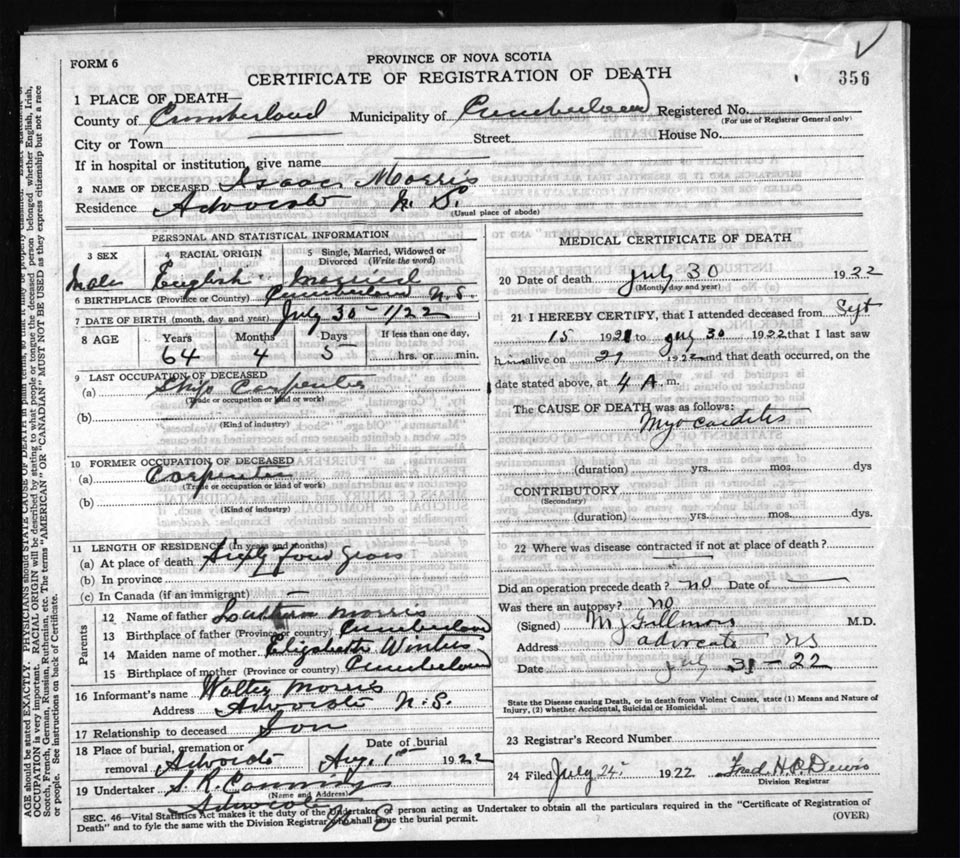 FORM 6
PROVINCE OF NOVA SCOTIA
CERTIFICATE OF REGISTRATION OF DEATH
356
1 PLACE OF DEATH—
County of Cumberland Municipality of Cumberland Registered No.
(For use of Registrar General only)
City or Town Street House No.
If in hospital or institution, give name
2 NAME OF DECEASED Isaac Morris
Residence Advocate N. S.
(Usual place of abode)
PERSONAL AND STATISTICAL INFORMATION
3 SEX 4 RACIAL ORIGIN 5 Single, Married, Widowed or
Divorced (Write the word)
Male English Married
6 BIRTHPLACE (Province or Country) Cumberland N.S.
7 DATE OF BIRTH (month, day and year) July 30-1/22
8 AGE Years Months Days If less than one day,
64 4 5 hrs. or min.
9 LAST OCCUPATION OF DECEASED
(a) Ship Carpenter
(Trade or occupation or kind of work)
(b)
(Kind of industry)
10 FORMER OCCUPATION OF DECEASED
(a) Carpenter
(Trade or occupation or kind of work)
(b)
(Kind of industry)
11 LENGTH OF RESIDENCE (In years and months)
(a) At place of death Sixty four years
(b) In province
(c) In Canada (if an immigrant)
Parents
12 Name of father Morris
13 Birthplace of father (Province or country) Cumberland
14 Maiden name of mother Elizabeth
15 Birthplace of mother (Province or country) Cumberland
16 Informant's name Walter Morris
Address Advocate N.S.
17 Relationship to deceased Son
18 Place of burial, cremation or Date of burial
removal Advocate Aug. 1st 1922
19 Undertaker S. R.
(Name and Address)
Advocate
N S
MEDICAL CERTIFICATE OF DEATH
20 Date of death July 30 1922
(Month, day and year)
21 I HEREBY CERTIFY, that I attended deceased from Sept
15 1921 to July 30 1922 that I last saw
him alive on 29 1922 and that death occurred, on the
date stated above, at 4 A. m.
The CAUSE OF DEATH was as follows:
Myocarditis
(duration) yrs. mos. dys
CONTRIBUTORY
(Secondary)
(duration) yrs. mos. dys.
22 Where was disease contracted if not at place of death?
Did an operation precede death? no Date of
Was there an autopsy? no
(Signed) M.D.
Address Advocate NS
Date July 31-22
State the Disease causing Death, or in death from Violent Causes, state (1) Means and Nature of
Injury, (2) whether Accidental, Suicidal or Homicidal.
23 Registrar's Record Number
24 Filed July 1922 Fred H.
Division Registrar
SEC. 46—Vital Statistics Act makes it the duty of the Undertaker or person acting as Undertaker to obtain all the particulars required in the "Certificate of Registration of
Death" and to fyle the same with the Division Registrar who shall issue the burial permit.
(OVER)